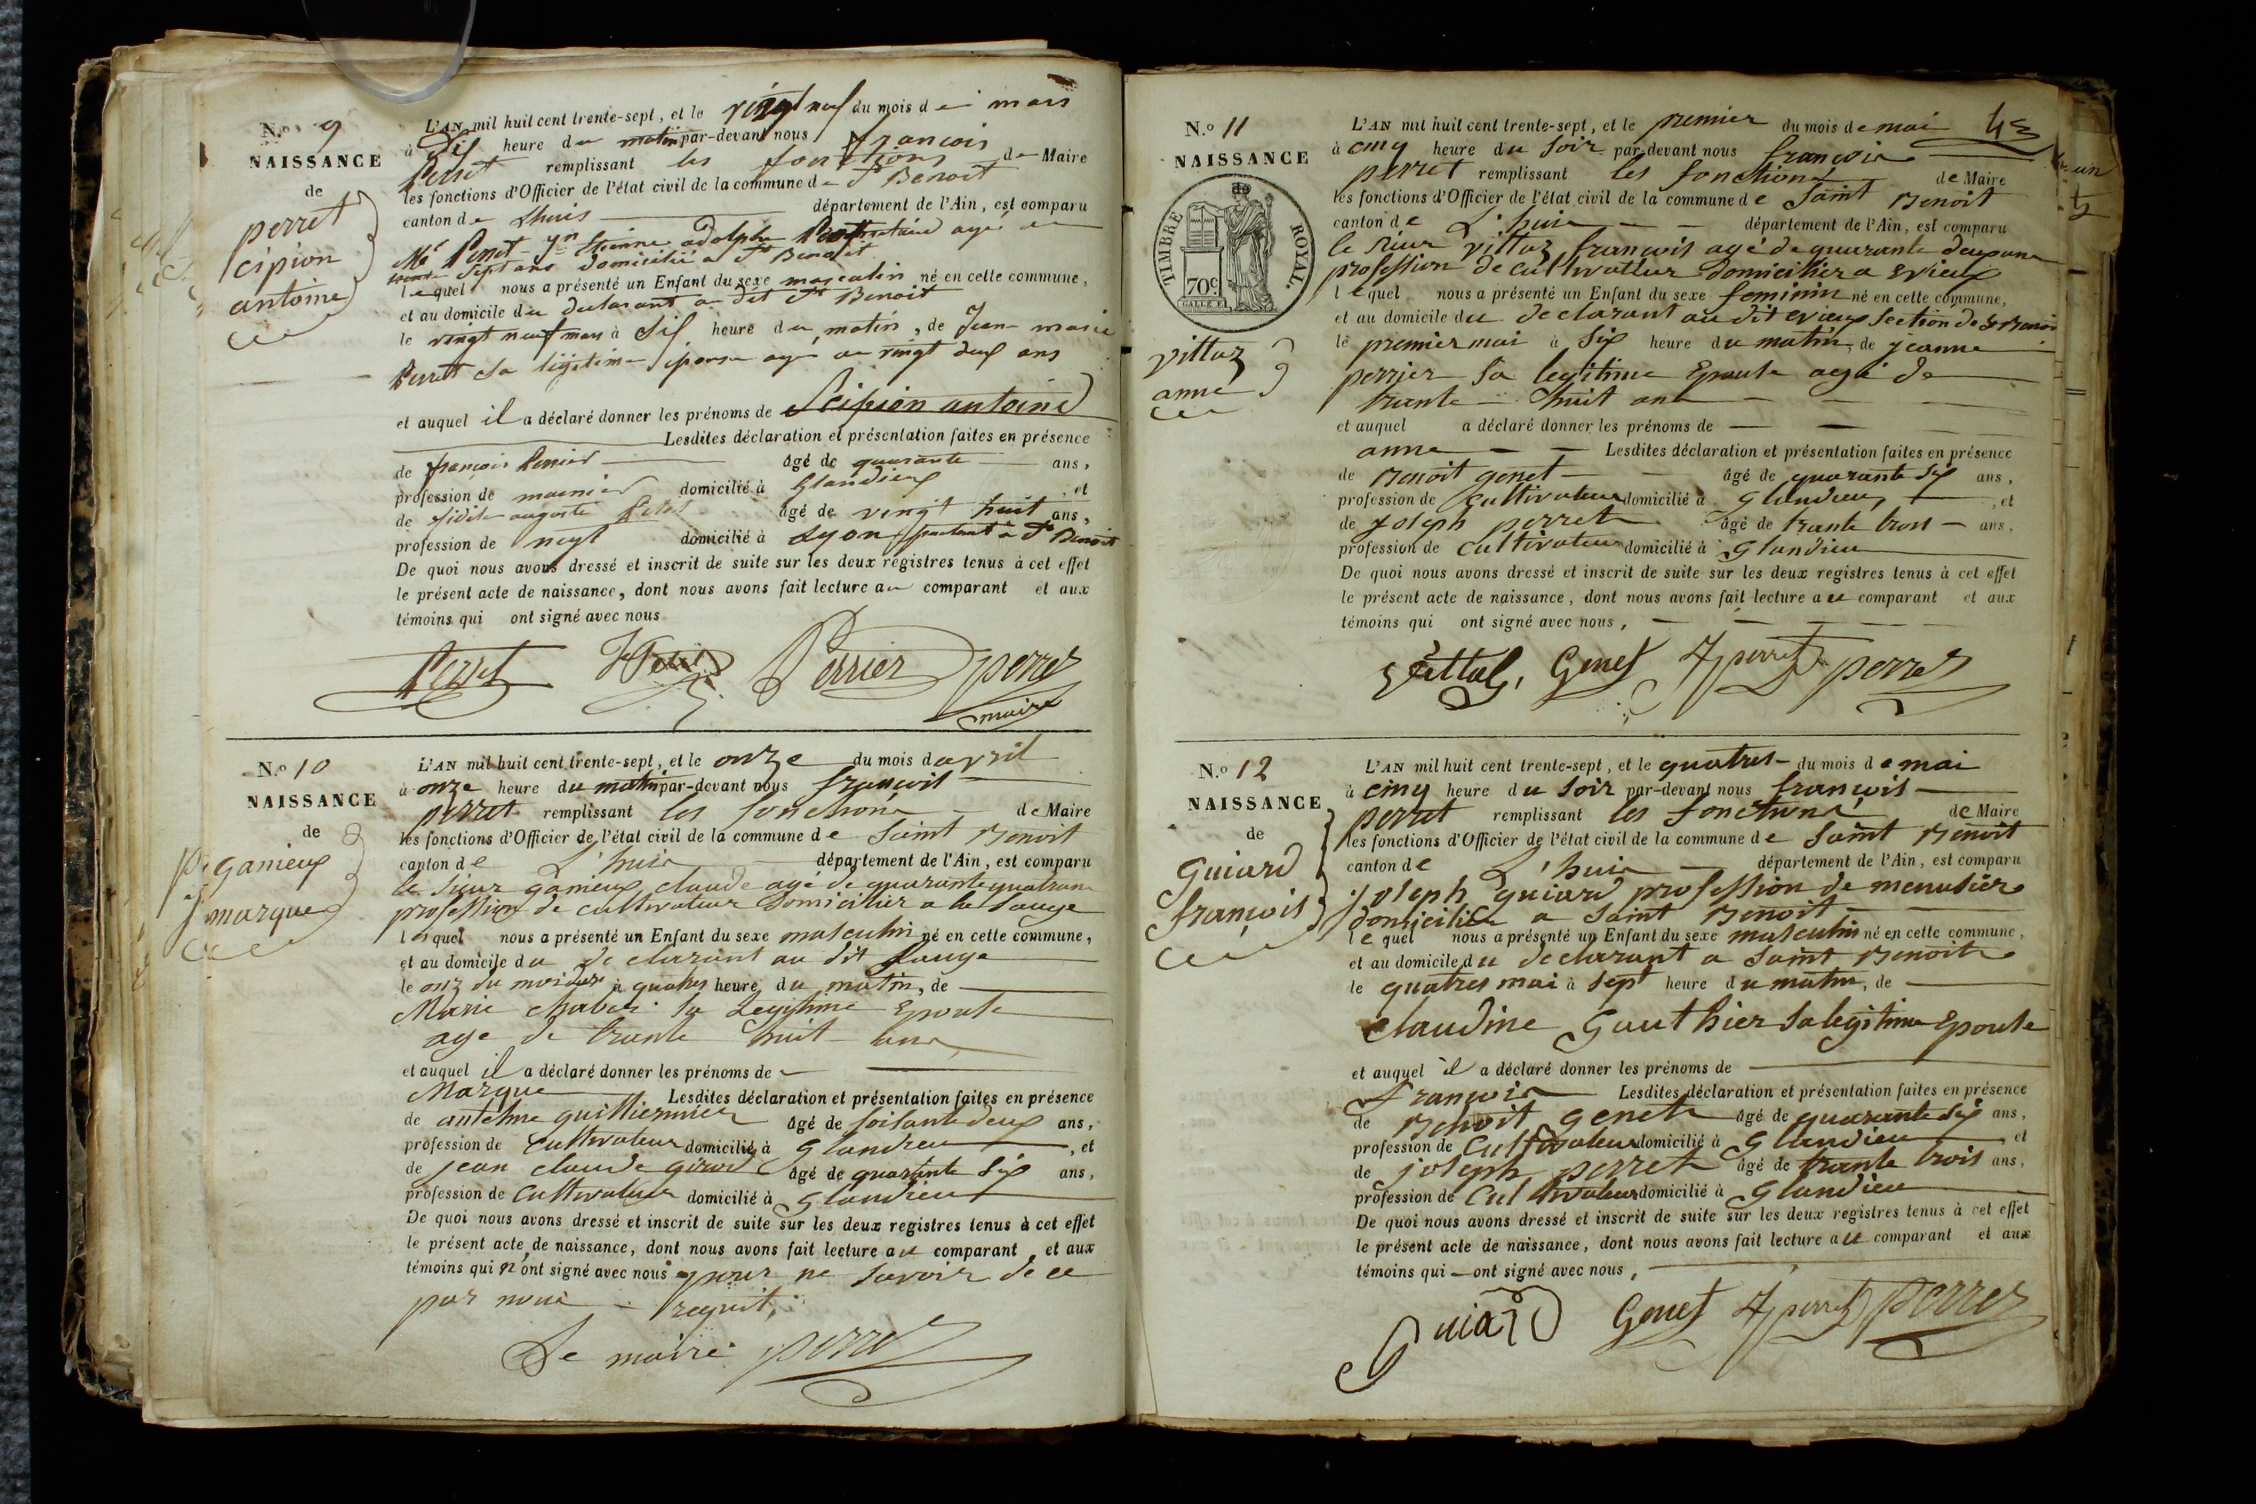 N.º 9
NAISSANCE
de
perret
cipion
antoine
L'AN mil huit cent trente-sept, et le vingt neuf du mois de mars
à dix heure du matin par-devant nous françois
Perret remplissant les fonctions de Maire
les fonctions d'Officier de l'état civil de la commune de St Benoit
canton de Lhuis département de l'Ain, est comparu
Mr Perret etienne adolphe Propriétaire agé de
trente sept ans domicilié à St Benoit
lequel nous a présenté un Enfant du sexe masculin né en cette commune,
et au domicile du declarant au dit St Benoit
le vingt neuf mars à six heure du matin, de Jeanne marie
Perret sa légitime épouse agé de vingt deux ans
et auquel il a déclaré donner les prénoms de Scipion antoine
Lesdites déclaration et présentation faites en présence
de françois Perrier âgé de quarante ans,
profession de meunier domicilié à Glandieux, et
de auguste âgé de vingt huit ans,
profession de negt domicilié à Lyon à St Benoit
De quoi nous avons dressé et inscrit de suite sur les deux registres tenus à cet effet
le présent acte de naissance, dont nous avons fait lecture au comparant et aux
témoins qui ont signé avec nous
Perret Petit Perrier perret
maire
N.º 10
NAISSANCE
de
ganieux
marque
L'AN mil huit cent trente-sept, et le onze du mois d avril
à onze heure du matin par-devant nous françois
perret remplissant les fonctions de Maire
les fonctions d'Officier de l'état civil de la commune de saint Benoit
canton de L'huis département de l'Ain, est comparu
le sieur ganieux claude agé de quarante quatre ans
profession de cultivateur domicilier a la sauge
lequel nous a présenté un Enfant du sexe masculin né en cette commune,
et au domicile du declarant au dit sauge
le onz du mois à quatres heure du matin, de
Marie chaber sa Legitime Epouse
age de trante huit ans
et auquel il a déclaré donner les prénoms de
Marque Lesdites déclaration et présentation faites en présence
de antelme guilliermier âgé de soisante deux ans,
profession de cultivateur domicilié à Glandieu, et
de jean claude girard âgé de quarante six ans,
profession de cultivateur domicilié à Glandieu
De quoi nous avons dressé et inscrit de suite sur les deux registres tenus à cet effet
le présent acte de naissance, dont nous avons fait lecture au comparant et aux
témoins qui n'ont signé avec nous pour ne savoir de ce
par nous requit,
Le maire perret
N.º 11
NAISSANCE
TIMBRE ROYAL.
70c
vittoz
anne
L'AN mil huit cent trente-sept, et le premier du mois de mai
à cinq heure du soir par-devant nous françois
perret remplissant les fonctions de Maire
les fonctions d'Officier de l'état civil de la commune de saint Benoit
canton de L'huis département de l'Ain, est comparu
le sieur vittoz françois agé de quarante deux ans
profession de cultivateur domicilier a Evieux
lequel nous a présenté un Enfant du sexe feminin né en cette commune,
et au domicile du declarant au dit evieux section de St Benoi
le premier mai à six heure du matin, de jeanne
perrier sa legitime Epouse agé de
trante huit ans
et auquel a déclaré donner les prénoms de
anne Lesdites déclaration et présentation faites en présence
de Benoit genet âgé de quarante six ans,
profession de cultivateur domicilié à Glandieu, et
de joseph perret âgé de trante trois ans,
profession de cultivateur domicilié à Glandieu
De quoi nous avons dressé et inscrit de suite sur les deux registres tenus à cet effet
le présent acte de naissance, dont nous avons fait lecture au comparant et aux
témoins qui ont signé avec nous,
vittoz, Genet J perret perret
N.º 12
NAISSANCE
de
Guiard
françois
L'AN mil huit cent trente-sept, et le quatres du mois de mai
à cinq heure du soir par-devant nous françois
perret remplissant les fonctions de Maire
les fonctions d'Officier de l'état civil de la commune de saint Benoit
canton de L'huis département de l'Ain, est comparu
joseph guiard profession de menusier
domicilier a saint Benoit
lequel nous a présenté un Enfant du sexe masculin né en cette commune,
et au domicile du declarant a saint Benoit
le quatres mai à sept heure du matin, de
claudine Gauthier sa legitime Epouse
et auquel il a déclaré donner les prénoms de
François Lesdites déclaration et présentation faites en présence
de Benoit genet âgé de quarante six ans,
profession de cultivateur domicilié à Glandieu et
de joseph perret âgé de trante trois ans,
profession de cultivateur domicilié à Glandieu
De quoi nous avons dressé et inscrit de suite sur les deux registres tenus à cet effet
le présent acte de naissance, dont nous avons fait lecture au comparant et aux
témoins qui ont signé avec nous,
Guiard Genet J perret perret